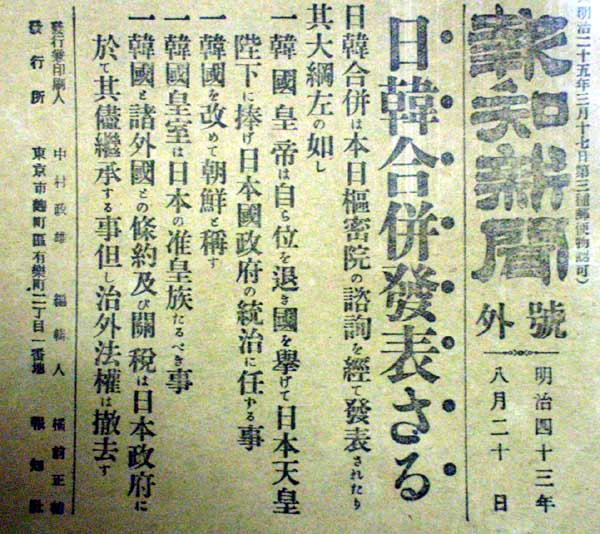 明治二十五年三月十七日第三種郵便物認可)
報知新聞
號外
明治四十三年
八月二十日
日韓合併發表さる
日韓合併は本日樞密院の諮詢を經て發表されたり
其大綱左の如し
一韓國皇帝は自ら位を退き國を擧げて日本天皇
陛下に捧げ日本國政府の統治に任する事
一韓國を改めて朝鮮と稱す
一韓國皇室は日本の准皇族たるべき事
一韓國と諸外國との條約及び關税は日本政府に
於て其儘繼承する事但し治外法權は撤去す
發行兼印刷人 中村政雄 編輯人 橋前正
發行所 東京市麹町區有樂町二丁目一番地 報知社